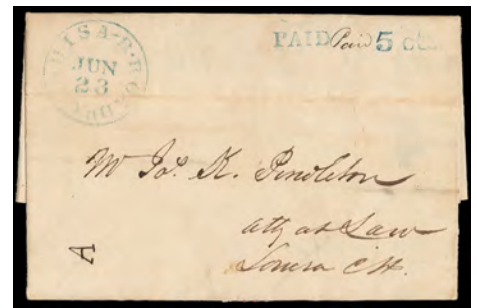 JUN
23
PAID Paid 5 cts
Mr Jos. K. Pendleton
atty at Law
Louisa C.H.
A